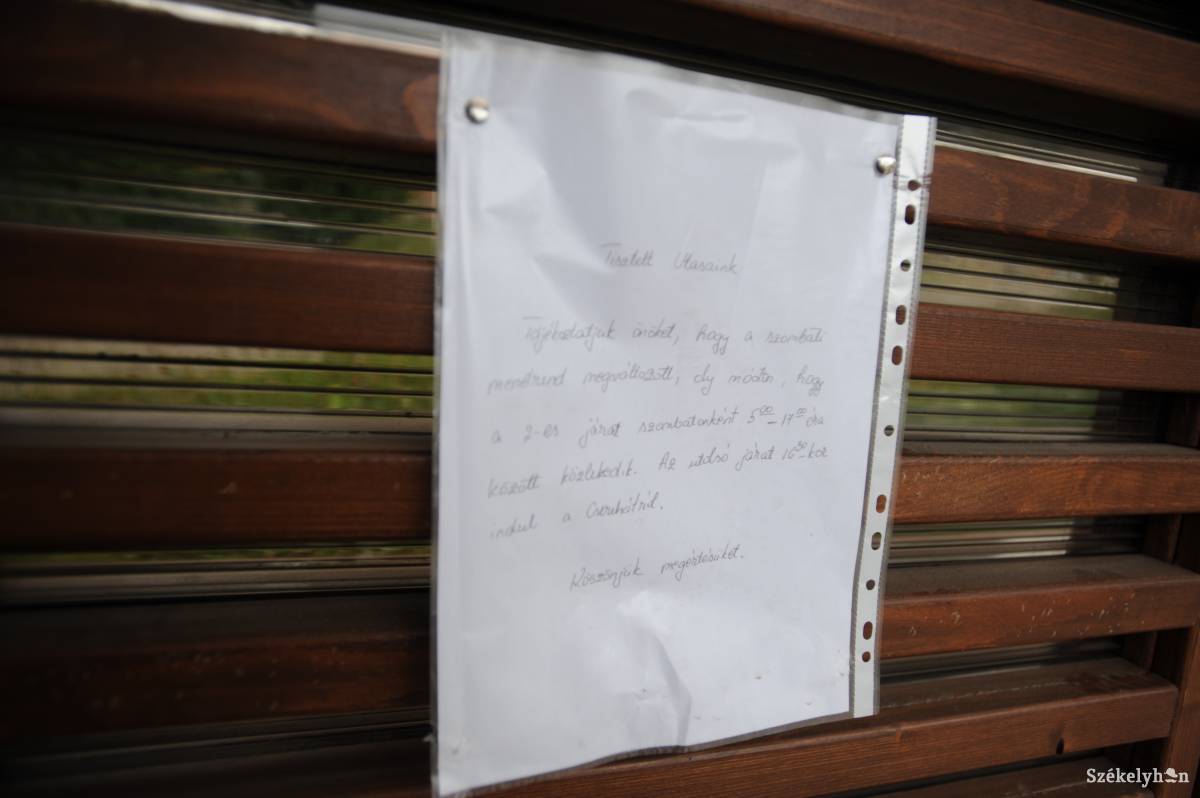 Tisztelt Utasaink
Tájékoztatjuk önöket, hogy a szombati
menetrend megváltozott, oly módon, hogy
a 2-es járat szombatonként 5⁰⁰-17⁰⁰ óra
között közlekedik. Az utolsó járat 16³⁰-kor
indul a Cserehátról.
Köszönjük megértésüket.
Székelyhon